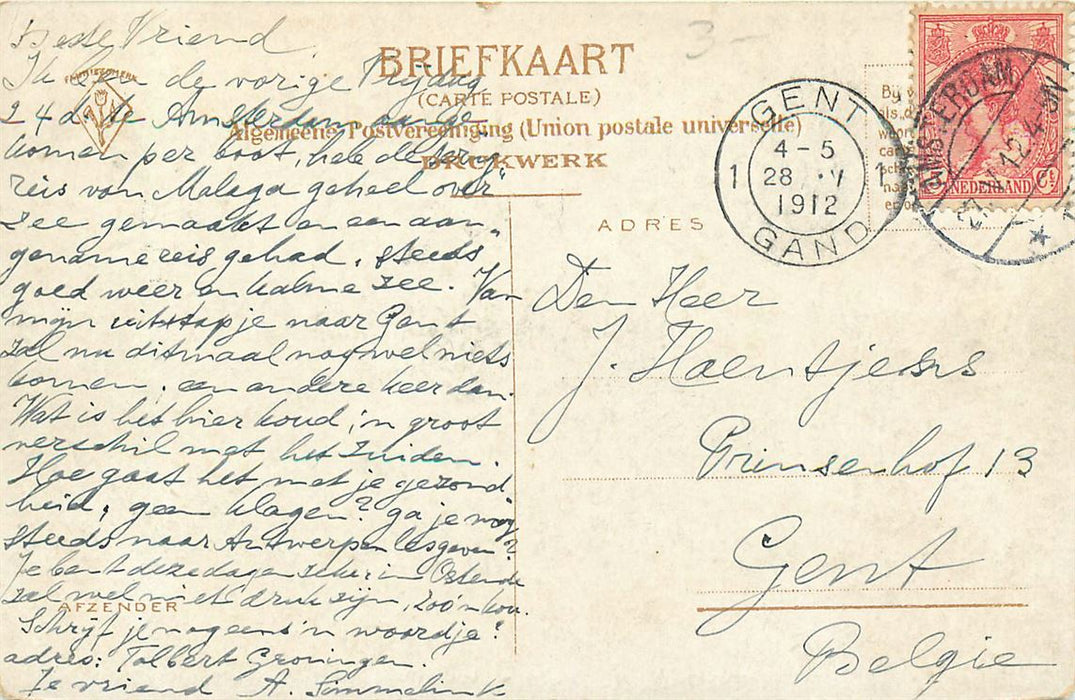 Beste Vriend
Ik ben de vorige Vrijdag
24 dezer te Amsterdam aange-
komen per boot, heb de terug
reis van Malaga geheel over
zee gemaakt en een aan„
gename reis gehad, steeds
goed weer en kalme zee. Van
mijn uitstapje naar Gent
zal nu ditmaal nog wel niets
komen, een andere keer dan.
Wat is het hier koud, 'n groot
verschil met het Zuiden.
Hoe gaat het met je gezond
heid, geen klagen? ga je nog
steeds naar Antwerpen lesgeven?
Je bent deze dagen zeker in Ostende
zal wel niet druk zijn, zoo'n kou.
Schrijf je nog eens 'n woordje?
adres: Tolbert Groningen.
Je vriend A. Simmelink
AFZENDER
FABRIEKSMERK
3-
BRIEFKAART
(CARTE POSTALE)
Algemeene Postvereeniging (Union postale universelle)
DRUKWERK
ADRES
GENT
4-5
1 28 V 1
1912
GAND
AMSTERDAM
12.4
NEDERLAND
5 Ct
Den Heer
J. Haentjens
Prinsenhof 13
Gent
Belgie